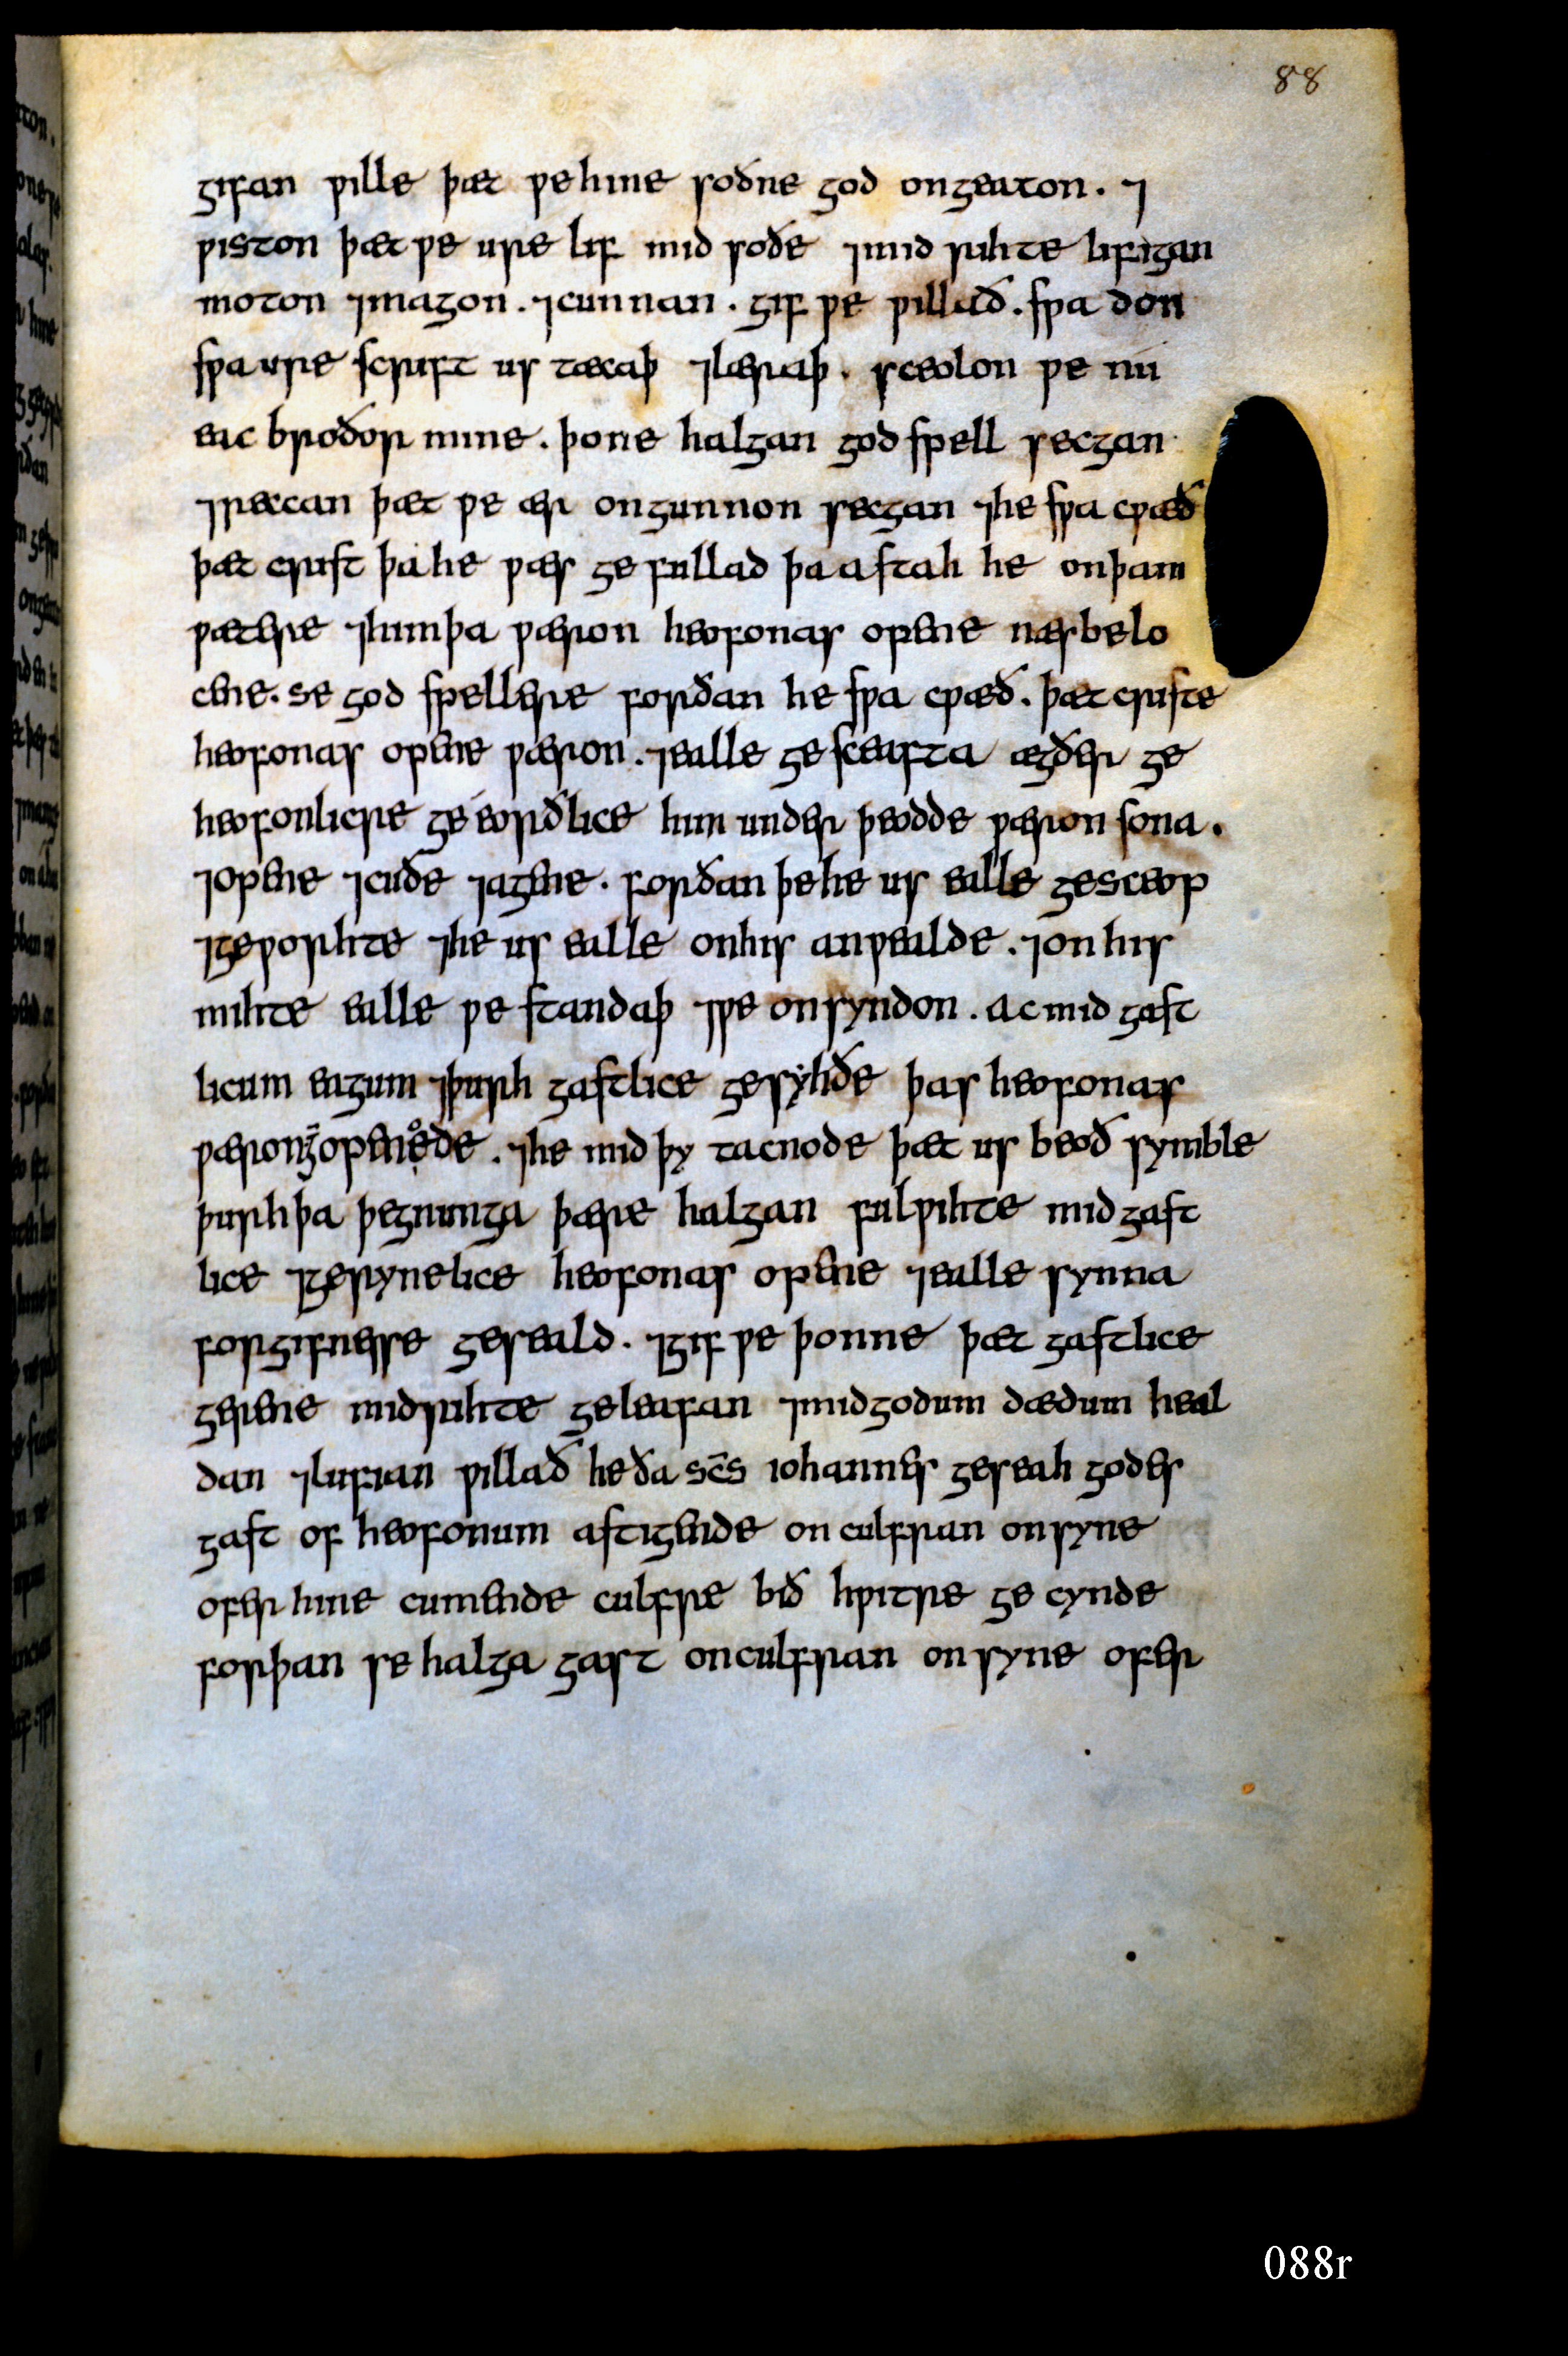 88
gifan ƿille þæt ƿe hine soðne god ongeaton. ⁊
ƿiston þæt ƿe ure lif mid soðe ⁊mid rihte lifigan
moton ⁊magon. ⁊cunnan. gif ƿe ƿillað. sƿa don
sƿa ure scrift us tæcaþ ⁊læraþ. sceolon ƿe nu
eac broðor mine. þone halgan god spell secgan
⁊reccan þæt ƿe ær ongunnon secgan ⁊he sƿa cƿæð
þæt crist þa he ƿæs ge fullad þa astah he onþam
ƿætere ⁊himþa ƿæron heofonas opene næs belo
cene. se god spellere forðan he sƿa cƿæð. þæt criste
heofonas opene ƿæron. ⁊ealle ge sceafta ægðer ge
heofonlicre ge eorðlice him under þeodde ƿæron sona.
⁊opene ⁊cuðe ⁊agene. forðan þe he us ealle gesceop
⁊geƿorhte ⁊he us ealle onhis anƿealde. ⁊on his
mihte ealle ƿe standaþ ⁊ƿe onsyndon. ac mid gast
licum eagum ⁊þurh gastlice gesyhðe þas heofonas
ƿæron geopenode. ⁊he mid þy tacnode þæt us beoð symble
þurh þa þegnunga þære halgan fulƿihte mid gast
lice ⁊gesynelice heofonas opene ⁊ealle synna
forgifnesse geseald. ⁊gif ƿe þonne þæt gastlice
gerene mid rihte geleafan ⁊mid godum dædum heal
dan ⁊lufian ƿillað he ða sc̄s iohannes geseah godes
gast of heofonum astigende on culfran onsyne
ofer hine cumende culfre bið hƿitre ge cynde
forþan se halga gast onculfran on syne ofer
088r